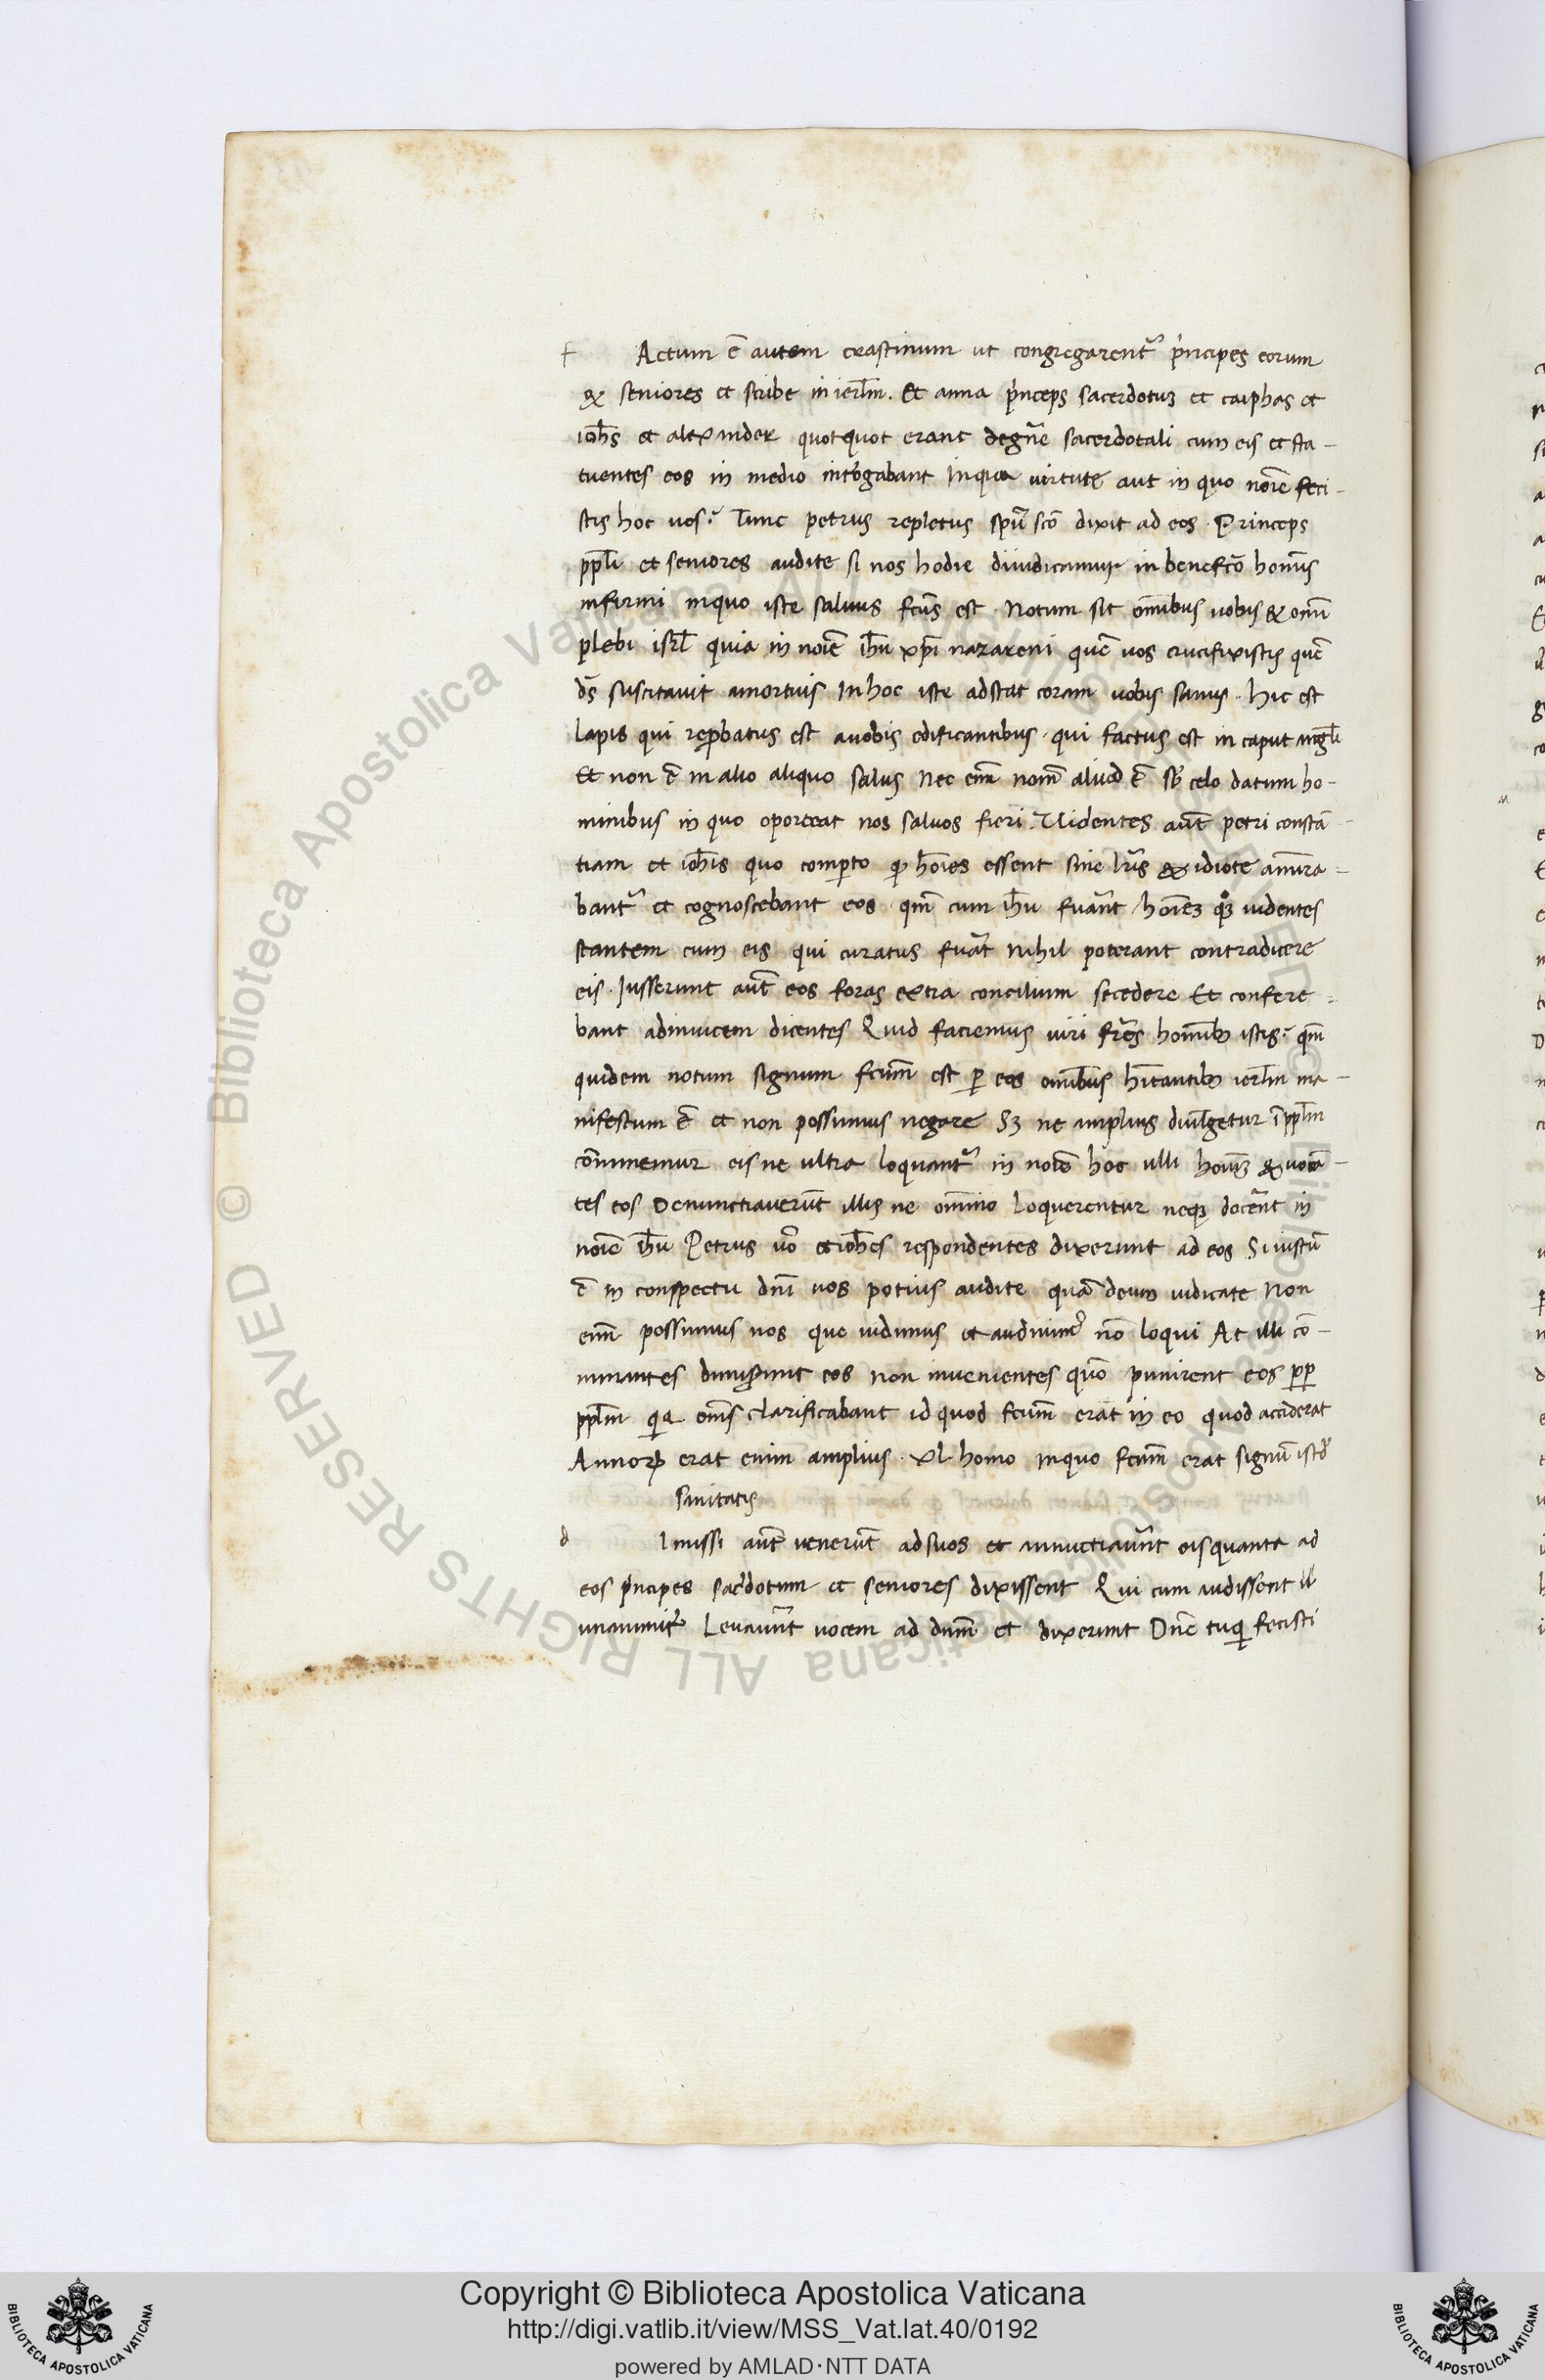 f Actum ē autem crastinum ut congregarentᷣ pͥncipes eorum
& seniores et scribe in ierłm. Et anna pͥnceps sacerdotuꝫ et caiphas et
ioh̄s et alexander quotquot erant degn̄e sacerdotali cum eis et sta-
tuentes eos in medio intͦogabant Inqua virtute aut in quo noīe feci-
stis hoc uos? Tunc petrus repletus spū scō dixit ad eos. Princeps
ppłi et seniores audite si nos hodie diiudicamur in benefcō homīs
infirmi inquo iste saluus fcūs est. Notum sit om̄ibus uobis & omī
plebi isrł quia in noīe ih̄u xp̄i nazareni quē uos crucifixistis quē
dş suscitavit amortuis In hoc iste adstat coram uobis sanus. hic est
lapis qui reꝓbatus est auobis edificantibus. qui factus est in caput angłi
Et non ē in alio aliquo salus Nec enī nom̄ aliud ē sƀ celo datum ho-
minibus in quo oporteat nos saluos fieri. Uidentes aūt petri constā-
tiam et ioh̄is quo comꝑto ꝙ hoīes essent sine lr̄is & idiote amira-
bantᷣ et cognoscebant eos qm̄ cum ih̄u fuānt hoīeꝫ qͦꝫ uidentes
stantem cum eis qui curatus fuāt Nihil poterant contradicere
eis. Iusserunt aūt eos foras extra concilium secedere Et confere-
bant adinuicem dicentes Quid faciemus viri frēs homībꝫ istis? qm̄
quidem notum signum fcūm est ꝑ eos om̄ibus hītantibꝫ ierłm ma-
nifestum ē et non possumus negare Sꝫ ne amplius diułgetur ī ppłm
com̄inemur eis ne ultra loquantᷣ in noīe hoc ulli homīꝫ & uocā-
tes eos Denunctiaverūt illis ne om̄ino loquerentur neqꝫ docēnt in
noīe ih̄u Petrus ūo et ioh̄es respondentes dixerunt ad eos Si iustū
ē in conspectu dn̄i uos potius audite quā deum iudicate Non
enī possumus nos que uidimus et audiuimꝰ nō loqui At illi cō-
minantes dimiserunt eos non invenientes quō punirent eos ꝓꝑ
ppłm quia om̄s clarificabant id quod fcūm erat in eo quod acciderat
Annoꝝ erat enim amplius. xl. homo Inquo fcūm erat signū istđ
sanitatis
d Imissi aūt venerūt adsuos et annuctiauānt eis quanta ad
eos pͥncipes sac̄dotum et seniores dixissent Qui cum audissent
unanimit̄ Levauānt uocem ad dnm̄ et dixerunt Dn̄e tu qui fecisti
Copyright © Biblioteca Apostolica Vaticana
http://digi.vatlib.it/view/MSS_Vat.lat.40/0192
powered by AMLAD·NTT DATA
BIBLIOTECA APOSTOLICA VATICANA
BIBLIOTECA APOSTOLICA VATICANA